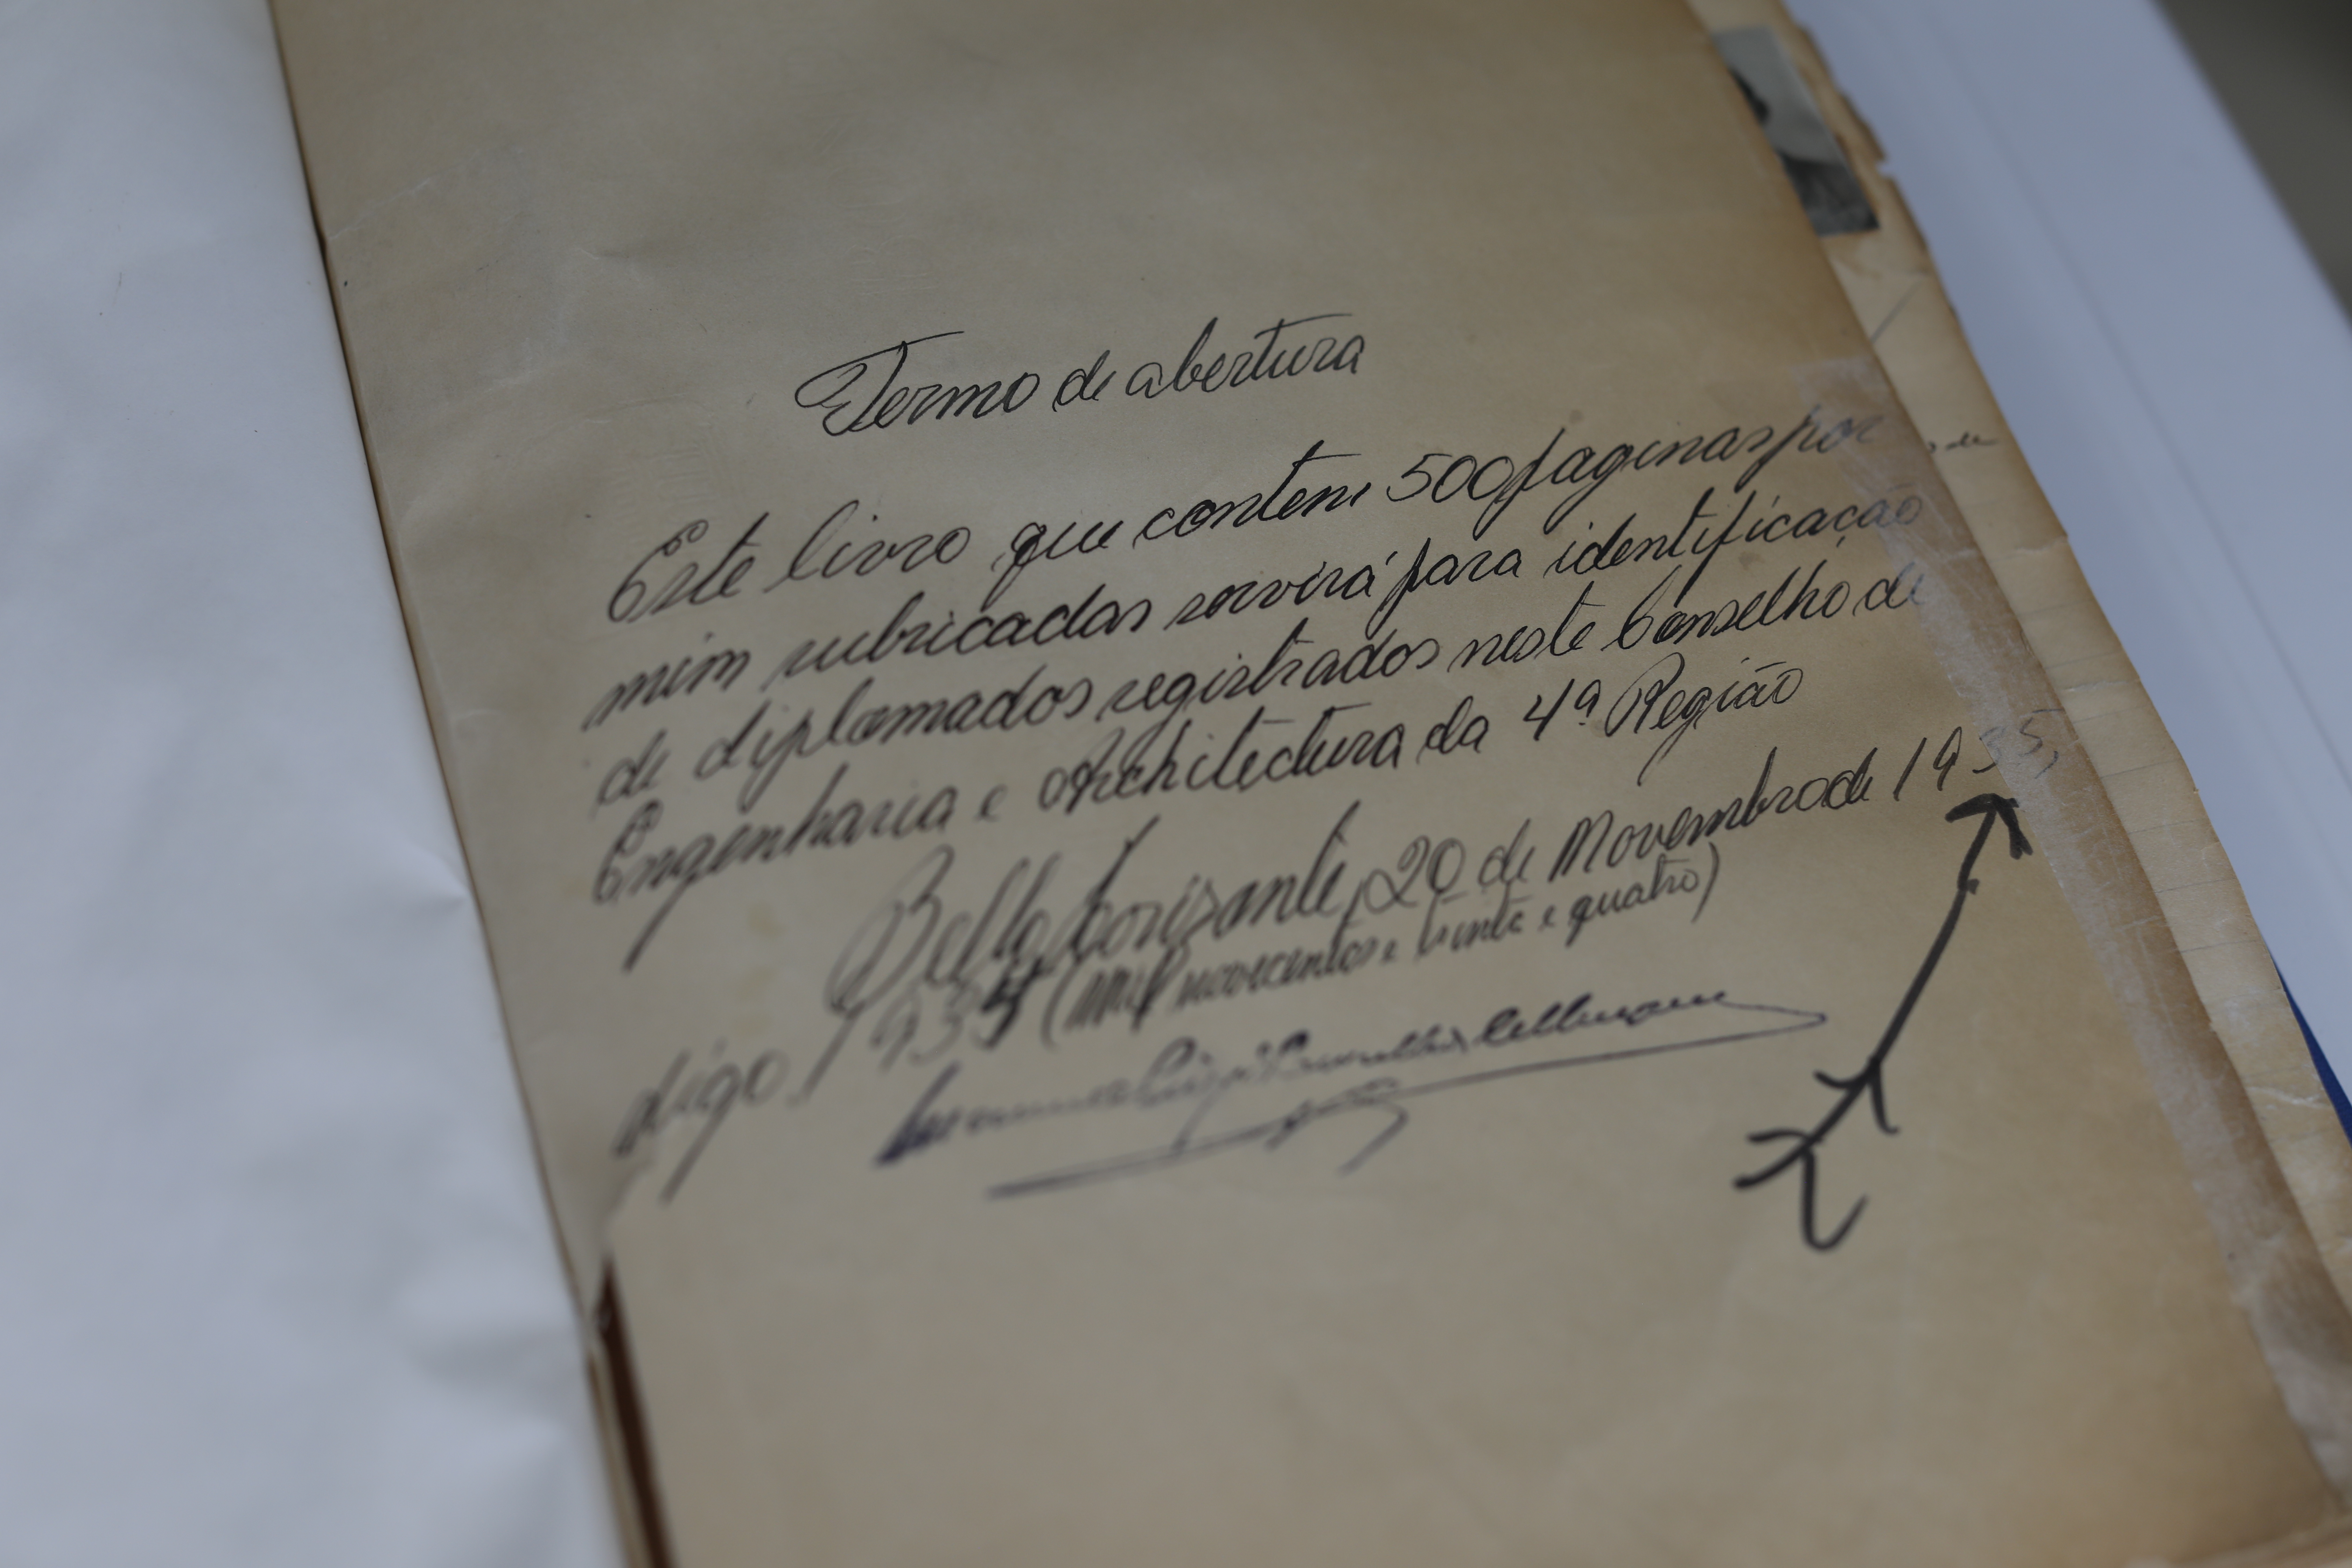 Termo de abertura
Este livro que contem 500 paginas por
mim rubricadas servirá para identificação
de diplomados registrados neste Conselho de
Engenharia e Architectura da 4ª Região
Bello Horizonte, 20 de Novembro de 1935,
digo 1934 (mil novecentos e trinta e quatro)